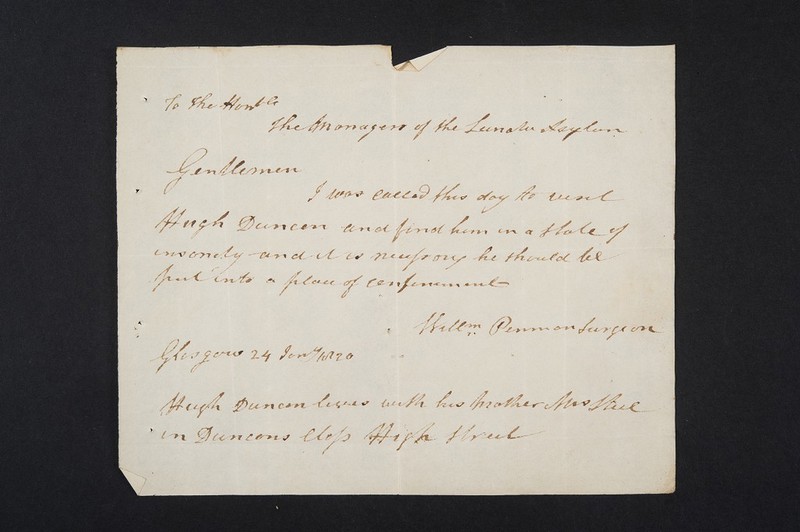 To The Honble
The Managers of the Lunatic Asylum
Gentlemen
I was called this day to visit
Hugh Duncan and find him in a state of
insanity and it is nessosary he should be
put into a place of confinement
Willm Penman Surgeon
Glasgow 24 Jany 1820
Hugh Duncan lives with his Mother Mrs
in Duncans Closs High Street